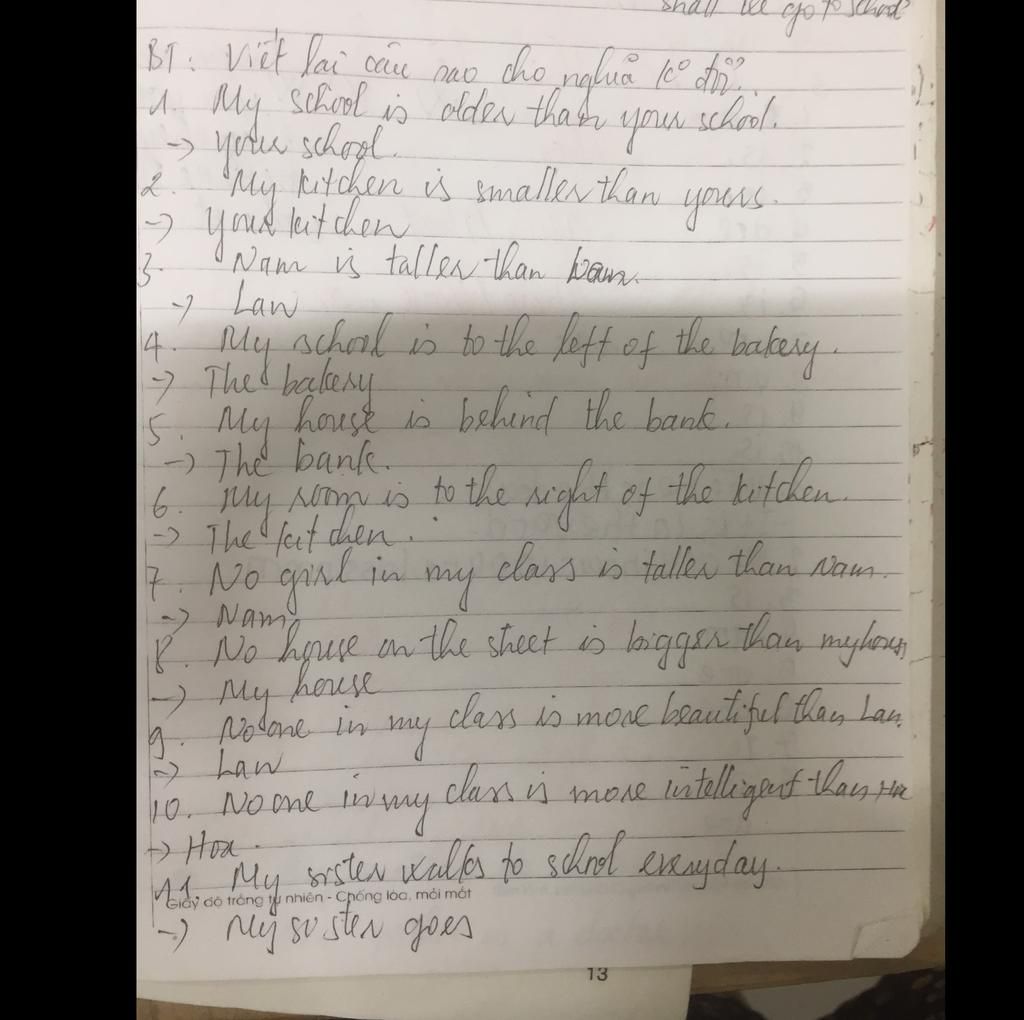 shall we go to school?
BT: Viết lại câu sao cho nghĩa ko đổi.
1. My school is older than your school.
-> your school.
2. My kitchen is smaller than yours.
-> Your kitchen
3. Nam is taller than
-> Lan
4. My school is to the left of the bakery.
-> The bakery
5. My house is behind the bank.
-> The bank.
6. My room is to the right of the kitchen.
-> The kitchen.
7. No girl in my class is taller than Nam.
-> Nam
8. No house on the street is bigger than my house
-> My house
9. No one in my class is more beautiful than Lan.
-> Lan
10. No one in my class is more intelligent than Hoa
-> Hoa.
11. My sister walks to school everyday.
Giấy có độ trắng tự nhiên - Chống lóa, mỏi mắt
-> My sister goes
13